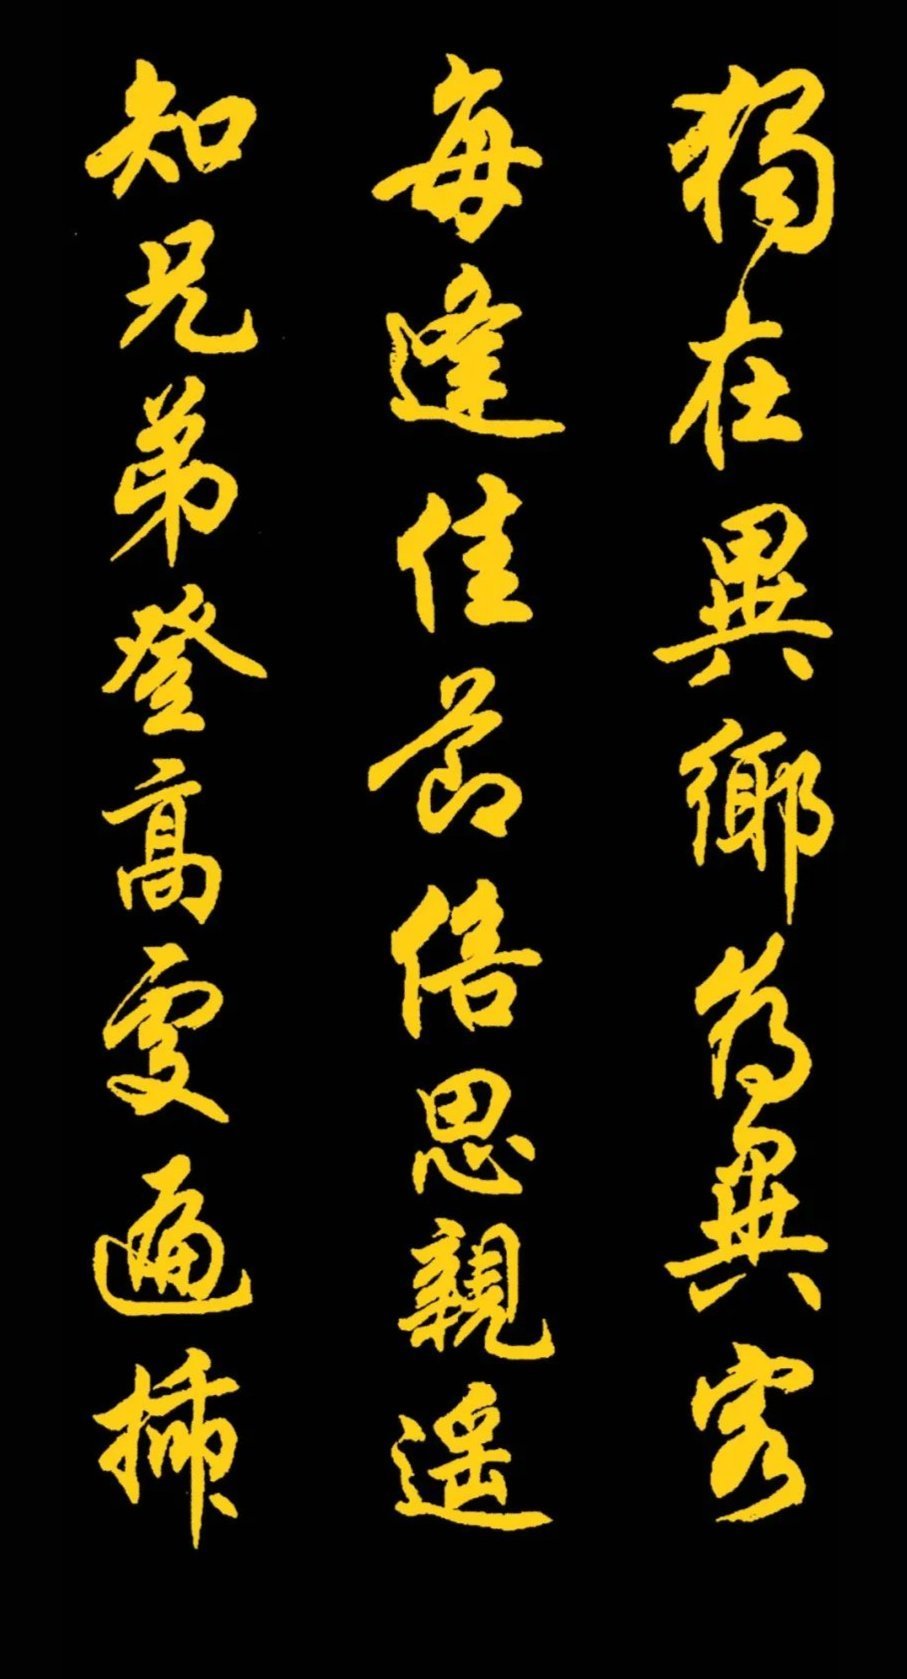 獨在異鄉為異客
每逢佳節倍思親遥
知兄弟登高處遍插